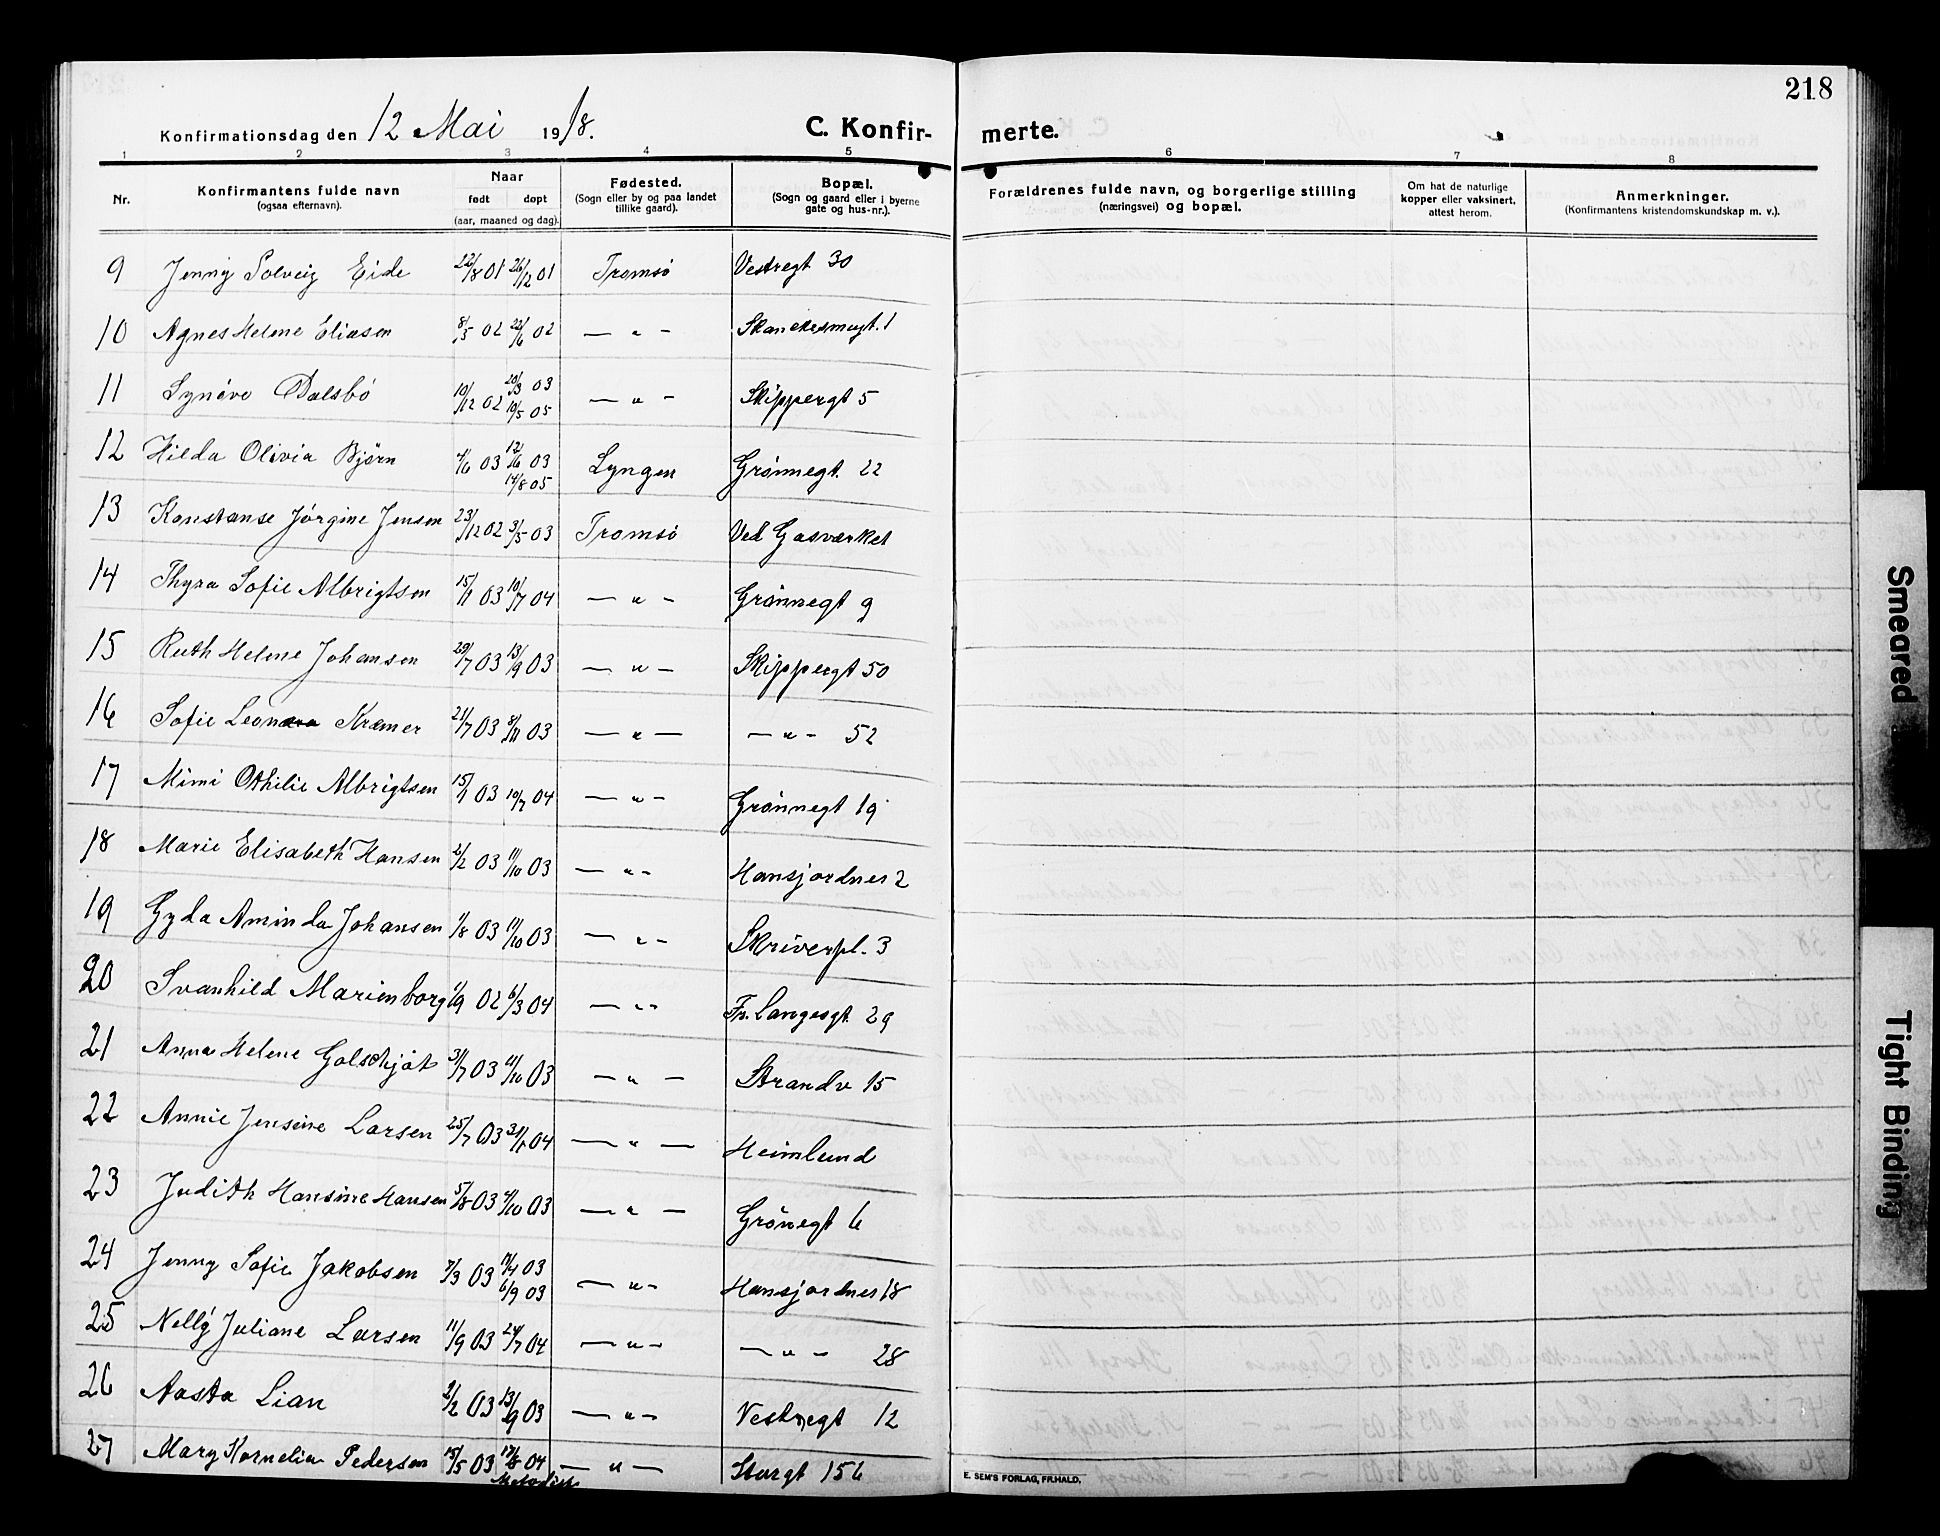 218
Konfirmationsdag den 12 Mai 1918.
C. Konfir- merte.
1 2 3 4 5 6 7 8
Nr.
Konfirmantens fulde navn
(ogsaa efternavn).
Naar
født døpt
(aar, maaned og dag).
Fødested.
(Sogn eller by og paa landet
tillike gaard).
Bopæl.
(Sogn og gaard eller i byerne
gate og hus-nr.).
Forældrenes fulde navn, og borgerlige stilling
(næringsvei) og bopæl.
Om hat de naturlige
kopper eller vaksinert,
attest herom.
Anmerkninger.
(Konfirmantens kristendomskundskap m. v.).
9 Jenny Solveig Eide 22/8 01 26/12 01 Tromsö Vestregt 30
10 Agnes Helene Eliasen 8/5 02 22/6 02 — " — Skanckesmugt. 1
11 Synöve Dalsbö 10/12 02 20/3 03 — " — Skippergt 5
19/5 05
12 Hilda Olivia Bjørn 4/6 03 12/6 03 Lyngen Grönnegt. 22
14/8 05
13 Konstanse Jörgine Jensen 23/12 02 3/5 03 Tromsö Ved Gasværket
14 Thyra Sofie Albrigtsen 15/1 03 10/7 04 — " — Grönnegt 9
15 Ruth Helene Johansen 29/7 03 13/9 03 — " — Skippergt 50
16 Sofie Kræmer 21/7 03 8/11 03 — " — — " — 52
17 Mimi Othilie Albrigtsen 15/1 03 10/7 04 — " — Grönnegt 19
18 Marie Elisabeth Hansen 2/2 03 11/10 03 — " — Hansjordnes 2
19 Gyda Aminda Johansen 1/8 03 11/10 03 — " — Skriverpl. 3
20 Svanhild Marienborg 1/9 02 6/3 04 — " — Fr. Langesgt. 29
21 Anna Helene Golschjöt 31/7 03 11/10 03 — " — Strandv 15
22 Annie Jensine Larsen 25/7 03 04 — " — Heimlund
23 Judith Hansine Hansen 5/8 03 4/10 03 — " — Grönegt 6
24 Jenny Sofie Jakobsen 7/3 03 17/4 03 — " — Hansjordnes 18
6/9 03
25 Nelly Juliane Larsen 11/9 03 24/7 04 — " — — " — 28
26 Aasta Lian 2/2 03 13/9 03 — " — Vestregt 12
27 Mary Kornelia Pedersen 15/5 03 04 — " — Storgt 156
Metodist
E. SEM'S FORLAG, FR.HALD.
Smeared
Tight Binding